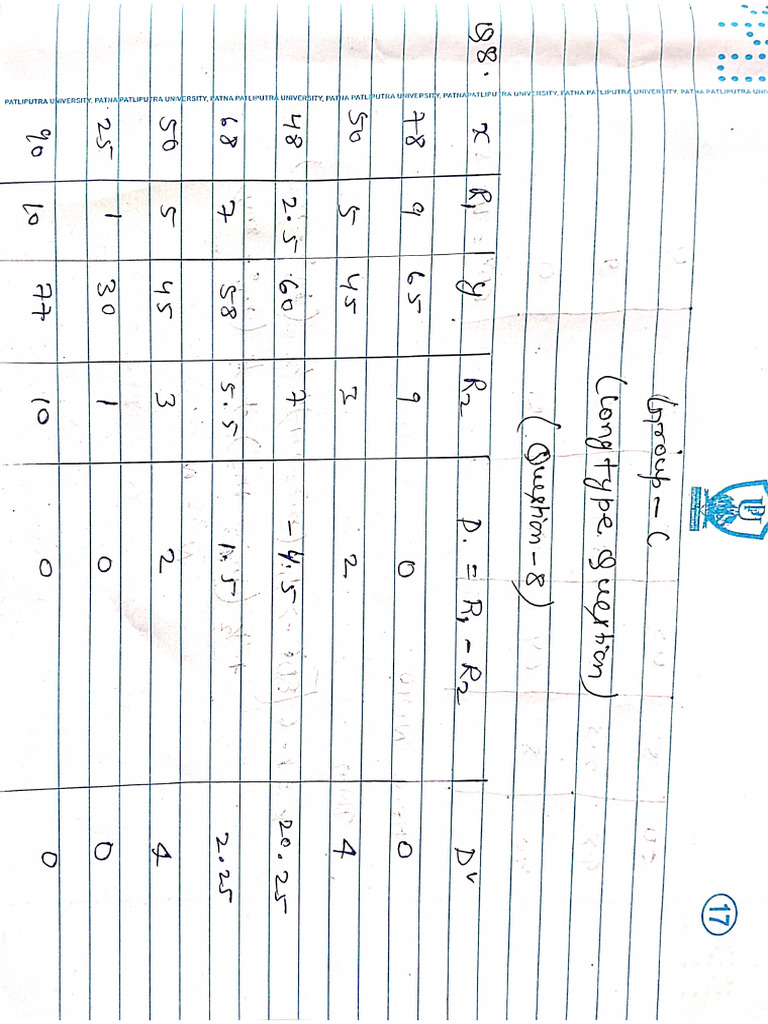 17
Group - C
(Long type question)
(Question - 8)
PATLIPUTRA UNIVERSITY, PATNA PATLIPUTRA UNIVERSITY, PATNA PATLIPUTRA UNIVERSITY, PATNA PATLIPUTRA UNIVERSITY, PATNA PATLIPUTRA UNIVERSITY, PATNA PATLIPUTRA UNIVERSITY, PATNA PATLIPUTRA UNI
98. x. R1 y R2 D. = R1 - R2 D²
78 9 65 9 0 0
50 5 45 3 2 4
48 2.5 60 7 -4.5 20.25
68 7 58 5.5 1.5 2.25
50 5 45 3 2 4
25 1 30 1 0 0
90 10 77 10 0 0